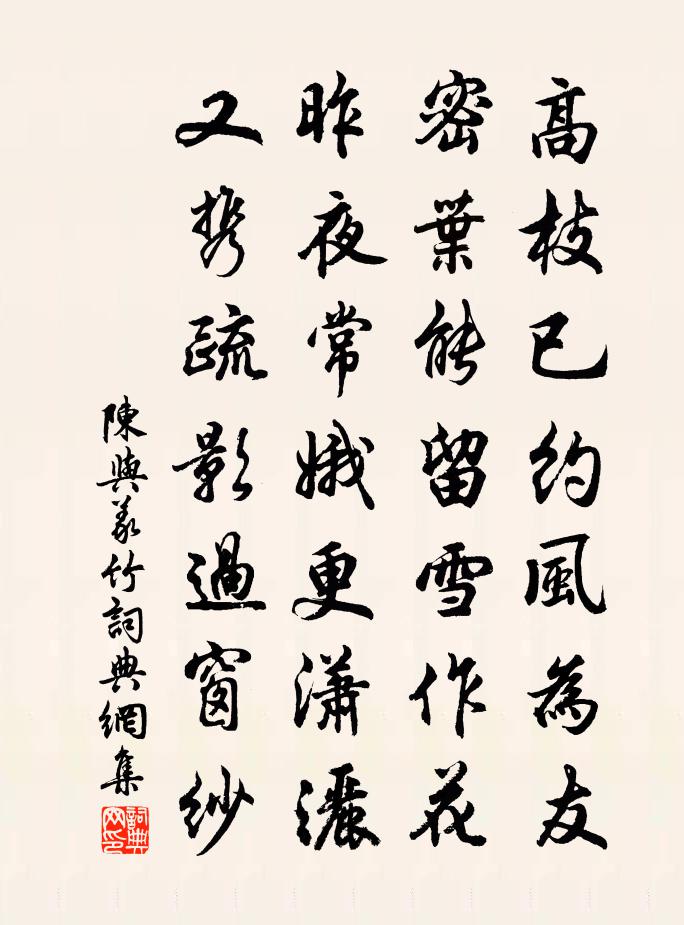 高枝已約風為友
密葉能留雪作花
昨夜常娥更瀟灑
又携疏影過窗紗
陳與義竹詞典網集
詞典網印